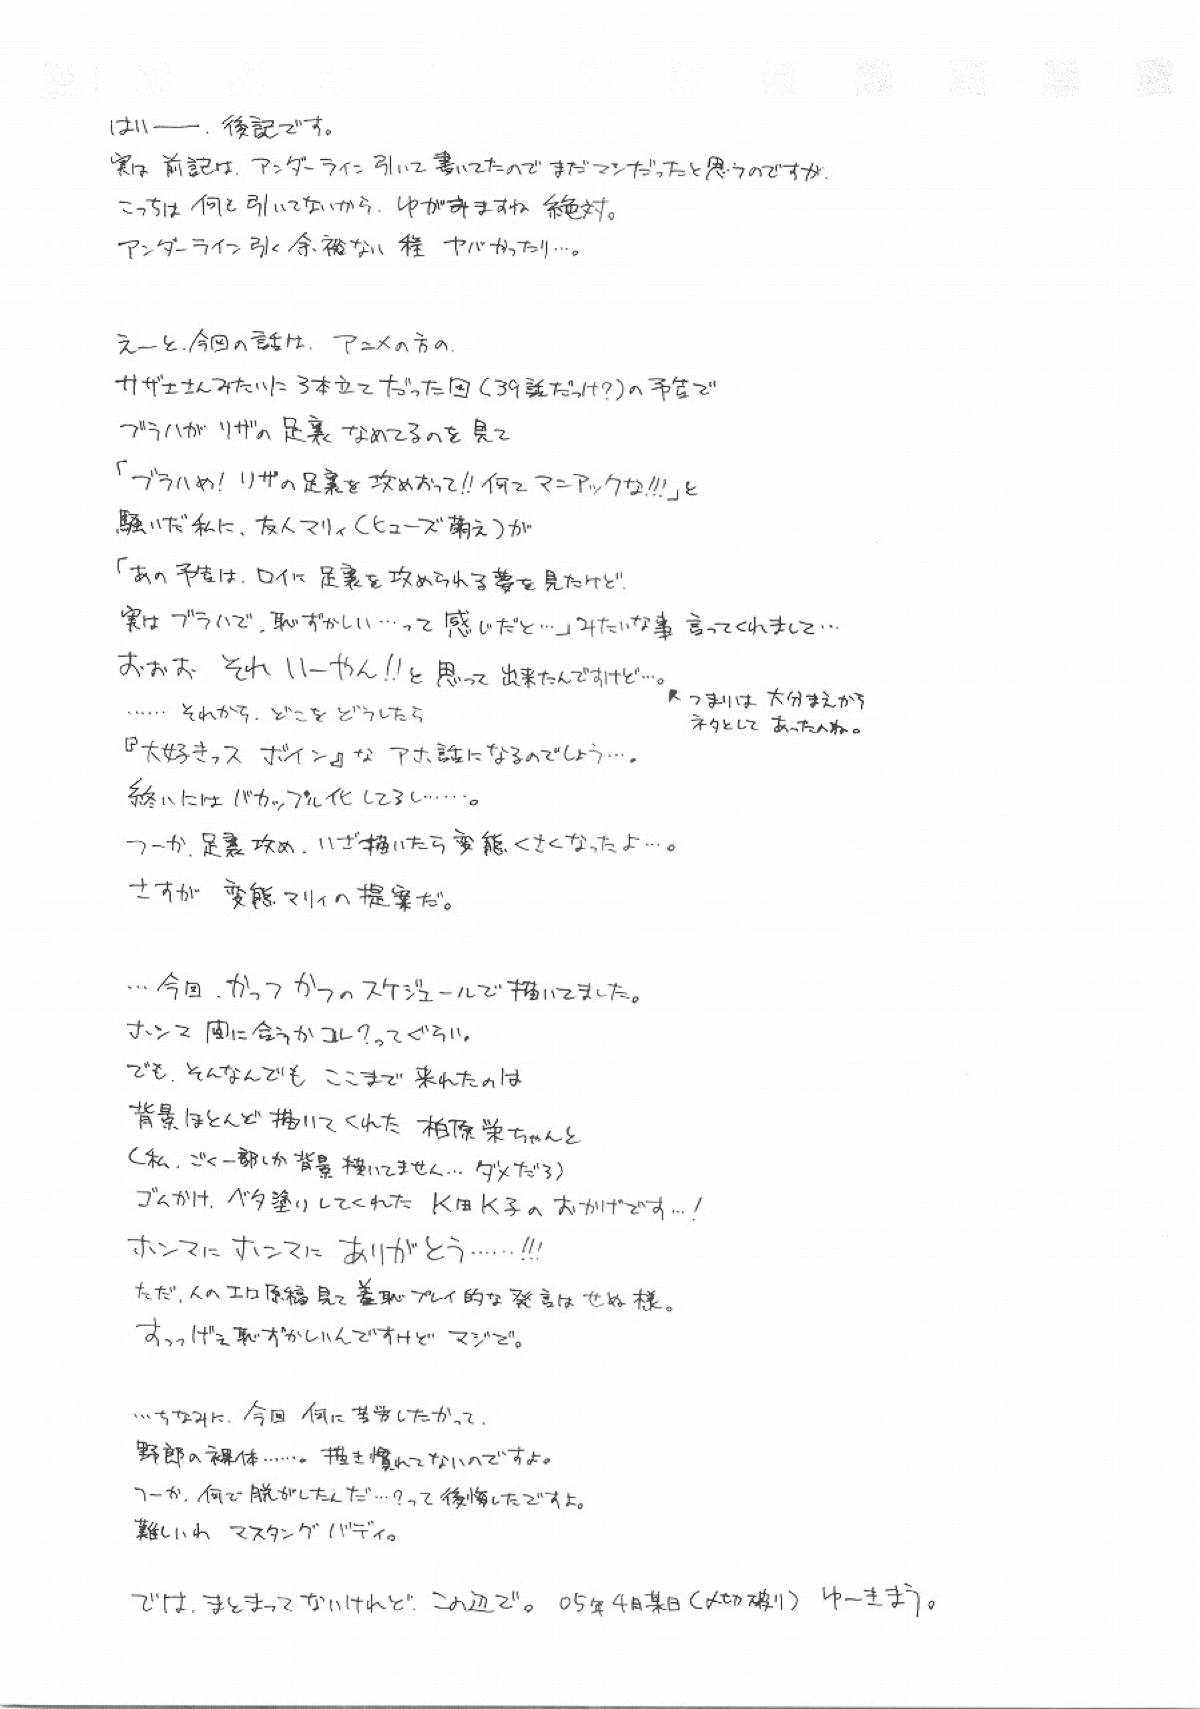 はいー、後記です。
実は前記は、アンダーライン引いて書いてたのでまだマシだったと思うのですが、
こっちは何も引いてないから、ゆがみますね 絶対。
アンダーライン引く余裕ない程 ヤバかったり…。
えーと、今回の話は、アニメの方の、
サザエさんみたいに3本立てだった回(39話だっけ?)の予告で
ブラハがリザの足裏なめてるのを見て
「ブラハめ!リザの足裏を攻めおって!!何てマニアックな!!!」と
騒いだ私に、友人マリィ(ヒューズ萌え)が
「あの予告は、ロイに足裏を攻められる夢を見たけど、
実はブラハで、恥ずかしい…って感じだと…」みたいな事言ってくれまして…
おぉお それ いーやん!!と思って出来たんですけど…。
↖つまりは 大分まえから
ネタとして あったのね。
……それから、どこをどうしたら
『大好きっス ボイン』な アホ話になるのでしょう…。
終いにはバカップル化してるし……。
つーか、足裏攻め、いざ描いたら変態くさくなったよ…。
さすが 変態マリィの提案だ。
…今回、かつつかつのスケジュールで描いてました。
ホンマ 間に合うかコレ?ってぐらい。
でも、そんなんでも ここまで来れたのは
背景ほとんど描いてくれた 柏原栄ちゃんと
(私、ごく一部しか背景描いてません…ダメだろ)
ゴムかけ、ベタ塗りしてくれた K田K子のおかげです…!
ホンマにホンマに ありがとう……!!!
ただ、人のエロ原稿見て羞恥プレイ的な発言はせぬ様。
すっっげぇ恥ずかしいんですけど マジで。
…ちなみに、今回 何に苦労したかって、
野郎の裸体……。描き慣れてないのですよ。
つーか、何で脱がしたんだ…?って後悔したですよ。
難しいわ マスタングバディ。
では、まとまってないけれど、この辺で。 05年4月某日(〆切破り) ゆーきまう。